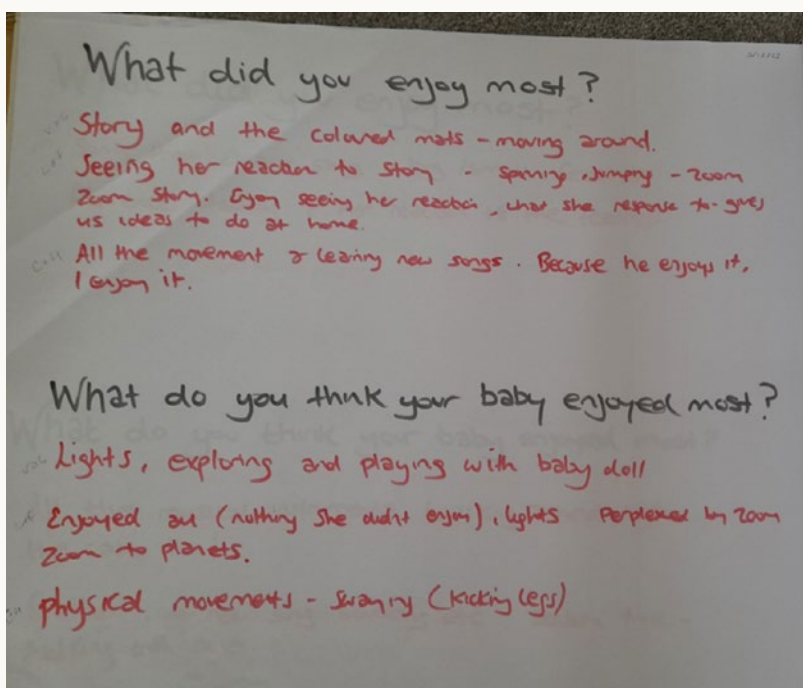 What did you enjoy most?
Story and the colored mats - moving around.
Seeing her reaction to story - spinning, jumping - zoom
zoom story. Enjoy seeing her reaction, what she response to - gives
us ideas to do at home.
All the movement & learning new songs. Because he enjoys it,
I enjoy it.
What do you think your baby enjoyed most?
Lights, exploring and playing with baby doll
Enjoyed all (nothing she didn't enjoy), lights Perplexed by zoom
zoom to planets.
physical movements - swaying (kicking legs)